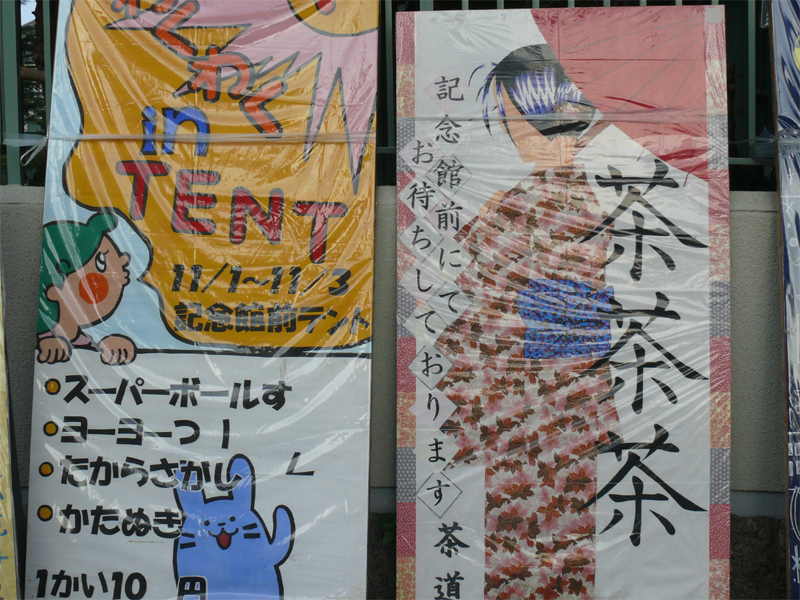 わくわく
in
TENT
11/1〜11/3
記念館前テント
スーパーボールす
ヨーヨーつ
たからさがし
かたぬき
1かい10 円
記念館前にて
お待ちしております
茶道
茶茶茶